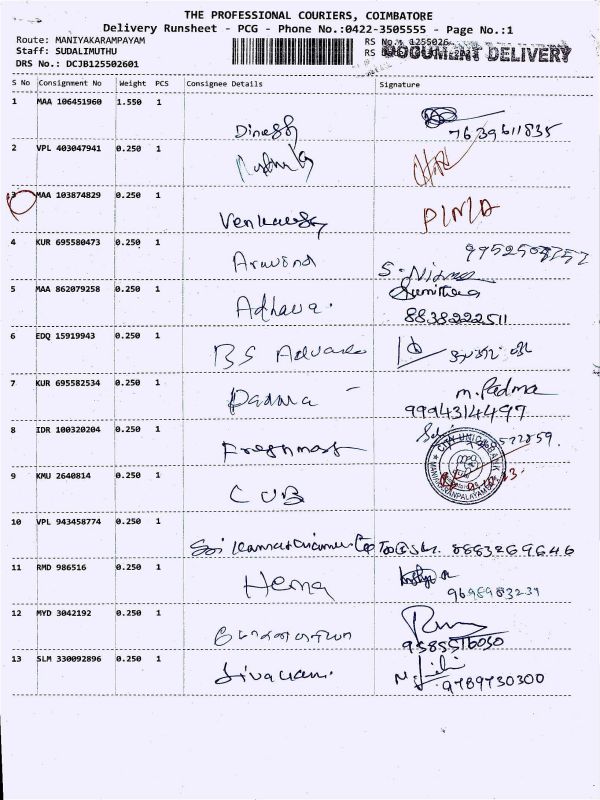 THE PROFESSIONAL COURIERS, COIMBATORE
Delivery Runsheet - PCG - Phone No.:0422-3505555 - Page No.:1
Route: MANIYAKARAMPAYAM
RS No.: 1255026
Staff: SUDALIMUTHU
RS
DOCUMENT DELIVERY
DRS No.: DCJB125502601
S No Consignment No Weight PCS Consignee Details Signature
1 MAA 106451960 1.550 1
Dinesh 7639611835
2 VPL 403047941 0.250 1
3 MAA 103874829 0.250 1
4 KUR 695580473 0.250 1
Aravind
5 MAA 862079258 0.250 1
Adhava. 8838222511
6 EDQ 15919943 0.250 1
BS
7 KUR 695582534 0.250 1
Padma m. Padma
9994314497
8 IDR 100320204 0.250 1
Freshmart
CITY UNION BANK
9 KMU 2640814 0.250 1
CUB
10 VPL 943458774 0.250 1
Sri 8883269646
11 RMD 986516 0.250 1
Hema
12 MYD 3042192 0.250 1
9585516050
13 SLM 330092896 0.250 1
Sivakami.
9789730300